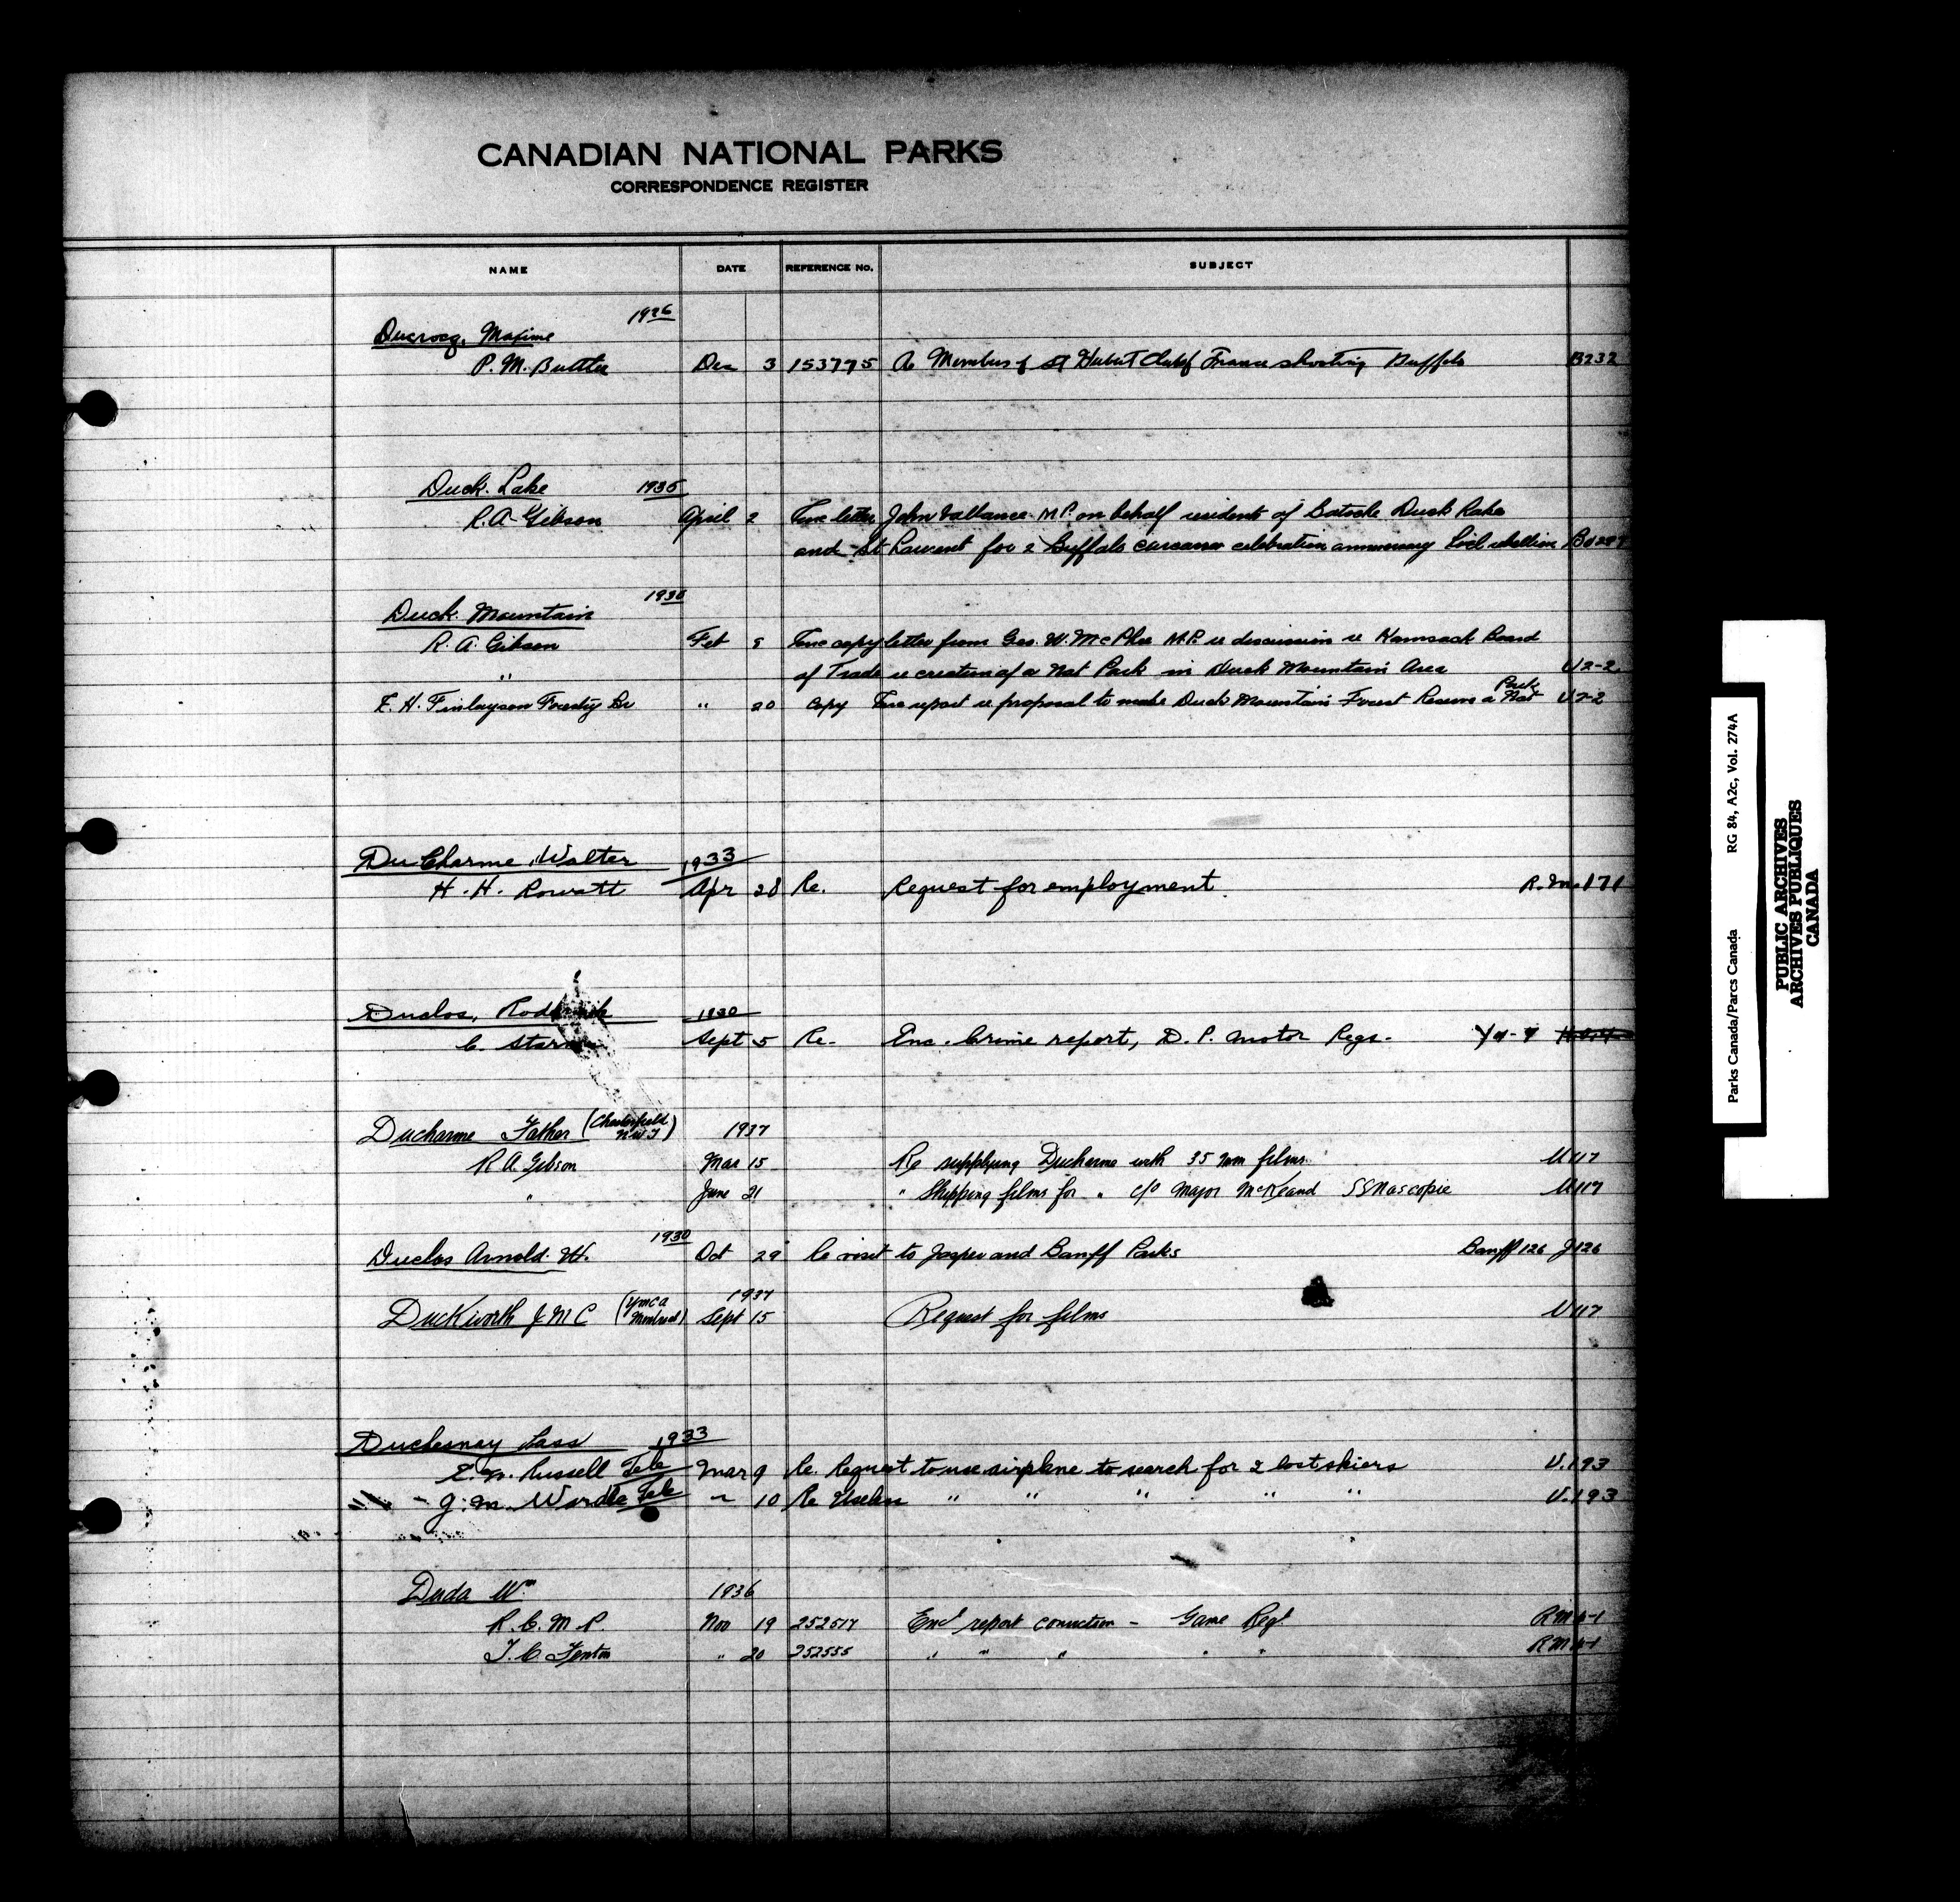 CANADIAN NATIONAL PARKS
CORRESPONDENCE REGISTER
NAME DATE REFERENCE No. SUBJECT
1926
Ducrocq, Maxime
P. M. Buttler Dec 3 153775 A Member of St Hubert Club of France shooting Buffalo B232
Duck Lake 1935
R.A. Gibson April 2 Enc letter John Vallance M.P. on behalf residents of Batoche Duck Lake
and St Laurent for 2 Buffalo carcases celebration anniversary Riel rebellion
Duck Mountain 1930
R. A. Gibson Feb 8 Enc copy letter from Geo. W. McPhee M.P. re discussion re Kamsack Board
" of Trade re creation of a Nat Park in Duck Mountain Area U2-2
E. H. Finlayson Forestry Br " 20 copy Enc report re proposal to make Duck Mountain Forest Reserve a Nat Park U2-2
DuCharme, Walter 1933
H. H. Rowatt Apr 28 Re. Request for employment. R.M.171
Duclos, Roderick 1930
C. Starnes Sept 5 Re- Enc. Crime report, D. P. Motor Regs.
Ducharme Father (Chesterfield N.W.T) 1937
R A Gibson Mar 15 Re supplying Ducharme with 35 mm films. U117
" June 21 " Shipping films for " c/o Major McKeand SS Nascopie U117
Duclos Arnold. W. 1930 Oct 29 Re visit to Jasper and Banff Parks Banff 126 J126
Duckworth J M C (YMCA Montreal) 1937 Sept 15 Request for films U117
Duchesnay Pass 1933
E. N. Russell Tele Mar 9 Re. Request to use airplane to search for 2 lost skiers U.193
" - J. M. Wardle Tele " 10 Re Useless " " " " " U.193
Duda Wm 1936
R. C. M. P. Nov 19 252517 Encl report conviction - Game Regs
T. C. Fenton " 20 252555 " " " " "
Parks Canada/Parcs Canada RG 84, A2c, Vol. 274A
PUBLIC ARCHIVES
ARCHIVES PUBLIQUES
CANADA